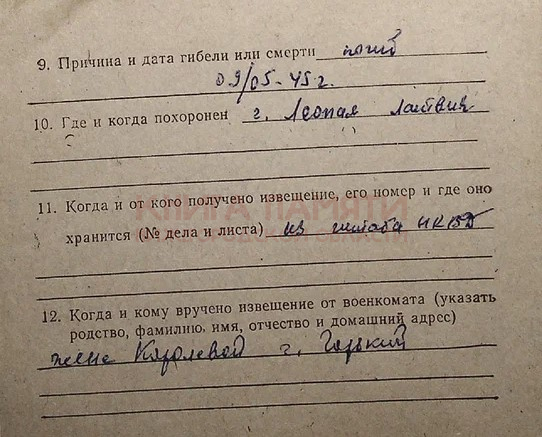 9. Причина и дата гибели или смерти погиб
09/05-45 г.
10. Где и когда похоронен г. Леопая Латвия
11. Когда и от кого получено извещение, его номер и где оно
хранится (№ дела и листа) из штаба НКВД
12. Когда и кому вручено извещение от военкомата (указать
родство, фамилию, имя, отчество и домашний адрес)
жене Королевой г. Горький
КНИГА ПАМЯТИ